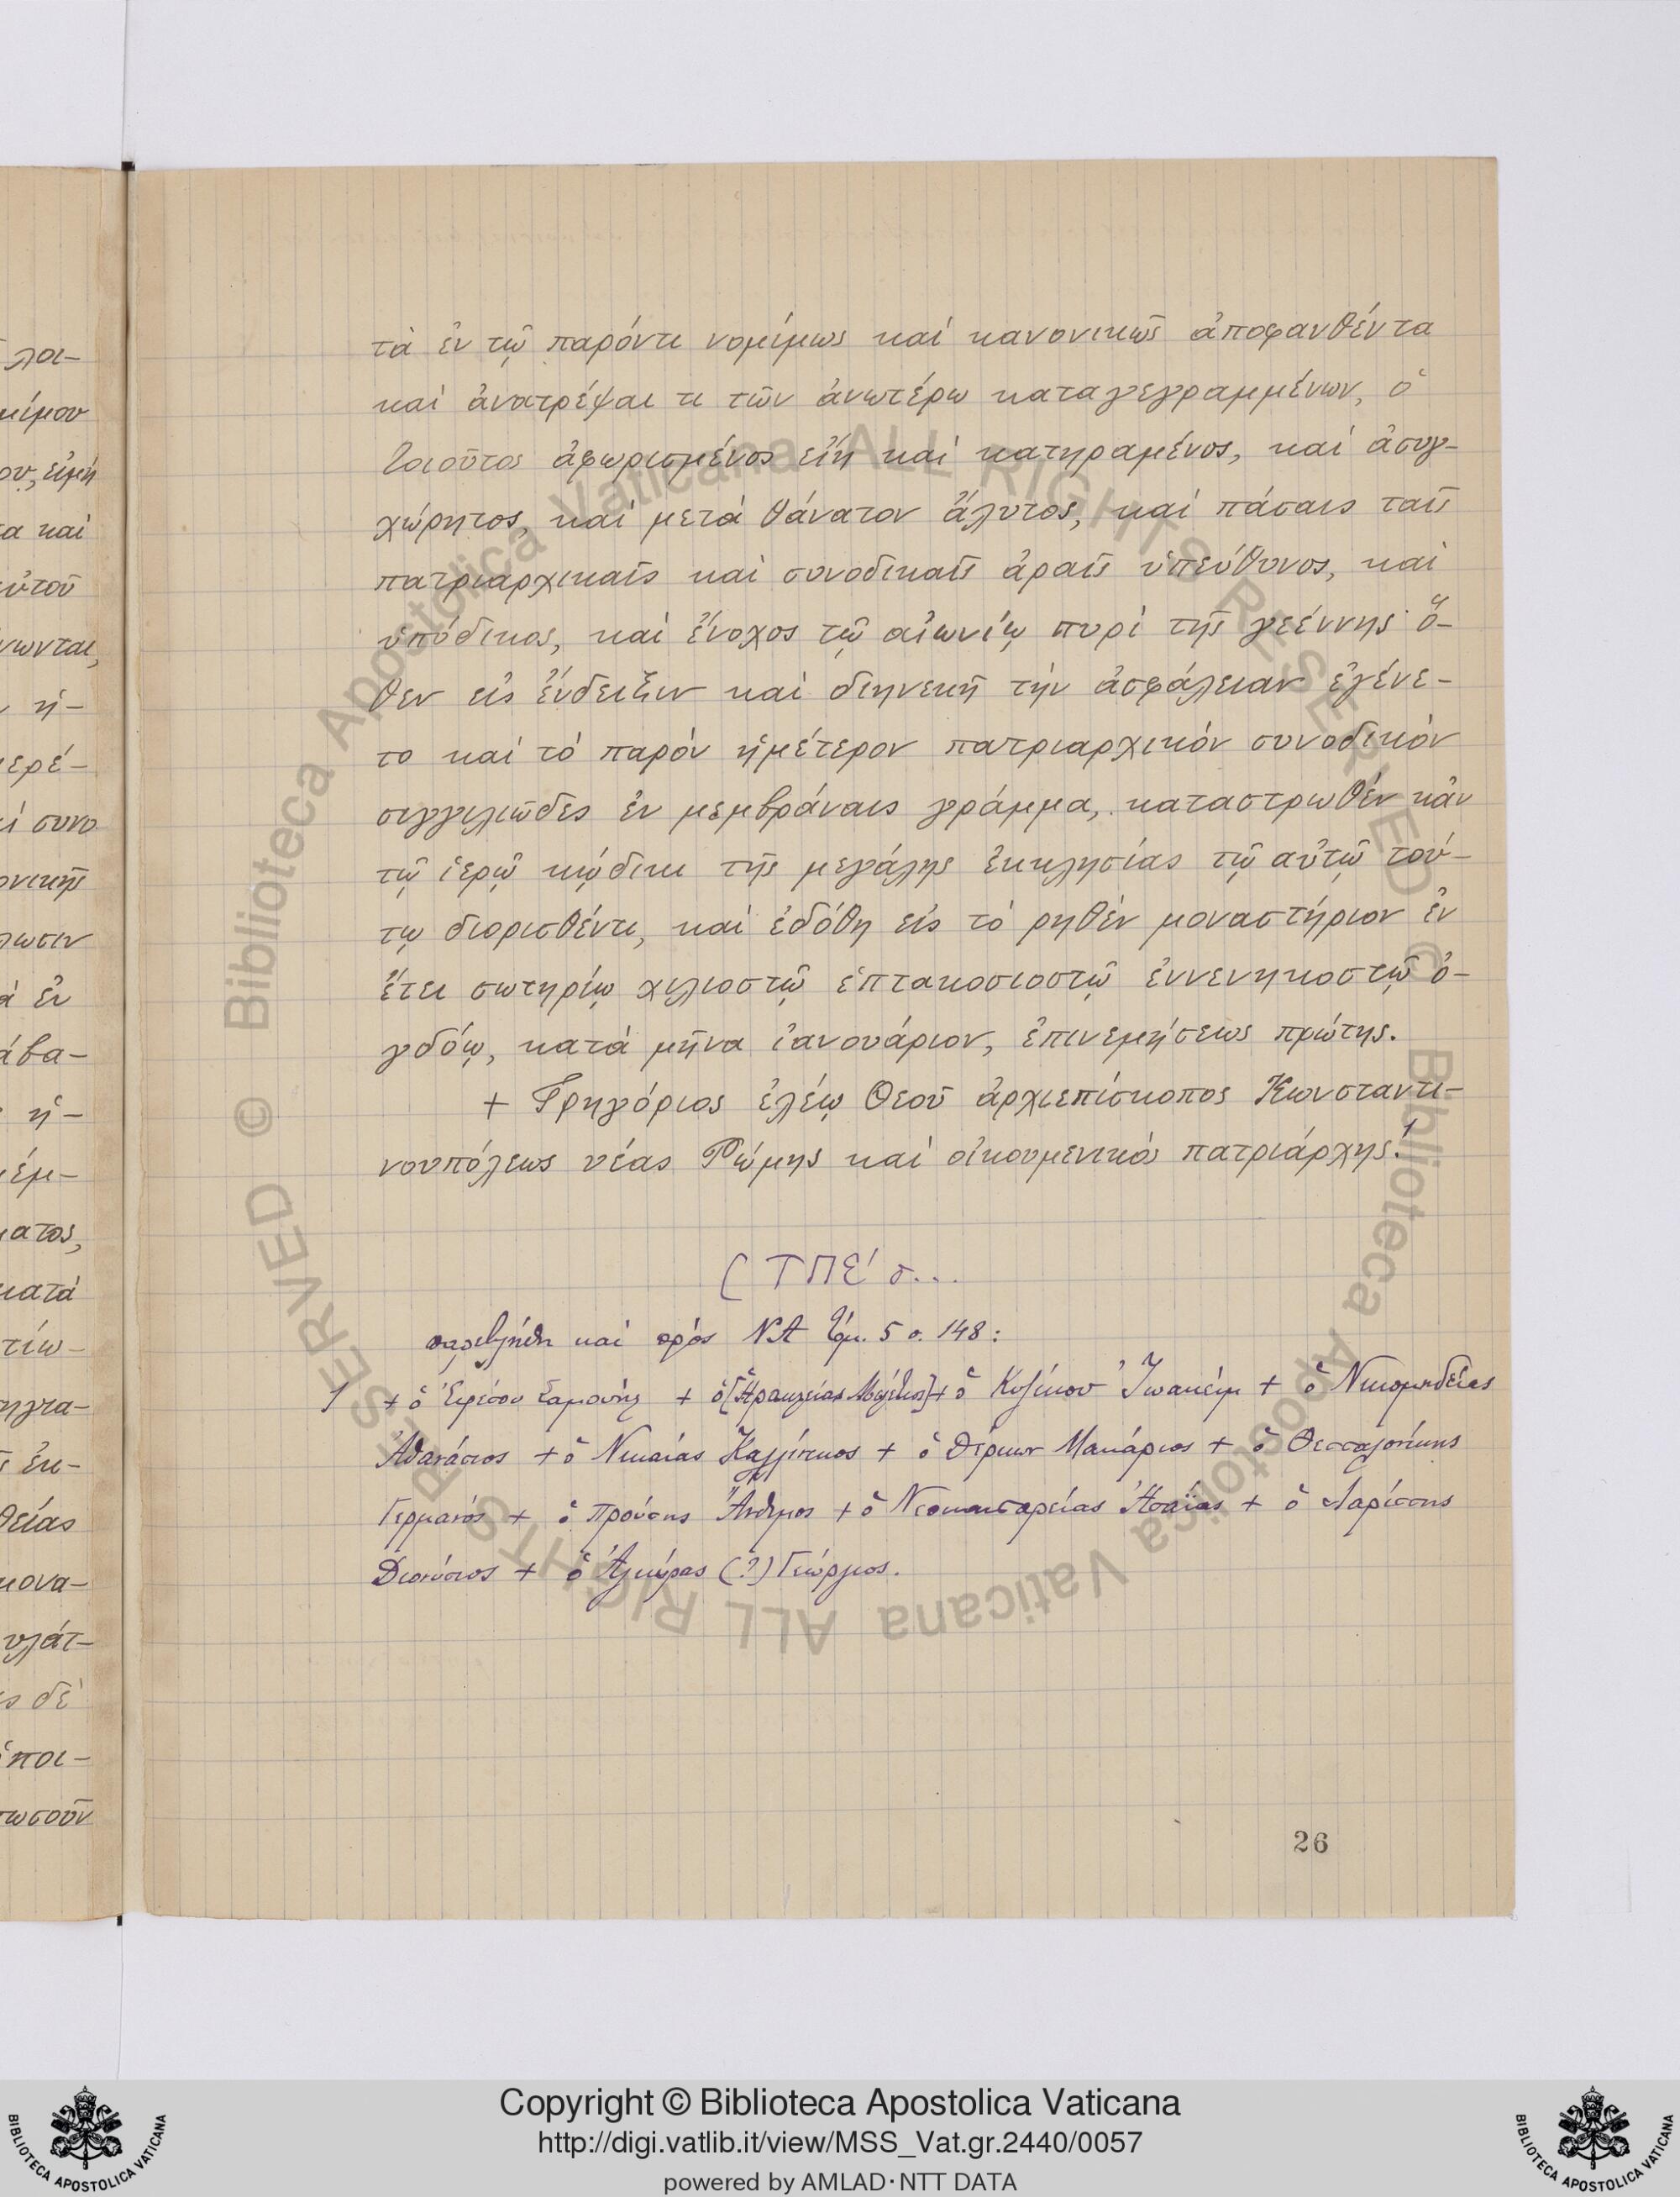 τὰ ἐν τῷ παρόντι νομίμως καί κανονικῶς ἀποφανθέντα
καί ἀνατρέψαι τι τῶν ἀνωτέρω καταγεγραμμένων, ὁ
τοιοῦτος ἀφωρισμένος εἴη καί κατηραμένος, καί ἀσυγ-
χώρητος, καί μετά θάνατον ἄλυτος, καί πάσαις ταῖς
πατριαρχικαῖς καί συνοδικαῖς ἀραῖς ὑπεύθυνος, καί
ὑπόδικος, καί ἔνοχος τῷ αἰωνίῳ πυρί τῆς γεέννης· ὅ-
θεν εἰς ἔνδειξιν καί διηνεκῆ τήν ἀσφάλειαν ἐγένε-
το καί τό παρόν ἡμέτερον πατριαρχικόν συνοδικόν
σιγγιλιῶδες ἐν μεμβράναις γράμμα, καταστρωθέν κἀν
τῷ ἱερῷ κώδικι τῆς μεγάλης ἐκκλησίας τῷ αὐτῷ τού-
τῳ διορισθέντι, καί ἐδόθη εἰς τό ρηθέν μοναστήριον ἐν
ἔτει σωτηρίῳ χιλιοστῷ ἑπτακοσιοστῷ ἐννενηκοστῷ ὀ-
γδόῳ, κατά μῆνα ἰανουάριον, ἐπινεμήσεως πρώτης.
+ Γρηγόριος ἐλέῳ Θεοῦ ἀρχιεπίσκοπος Κωνσταντι-
νουπόλεως νέας Ρώμης καί οἰκουμενικός πατριάρχης.1
(ΤΠΕ' σ...
παρεβλήθη καί πρός ΝΑ τόμ. 5 σ. 148:
1 + ὁ Ἐφέσου Σαμουήλ + ὁ [Ἡρακλείας Μελέτιος] + ὁ Κυζίκου Ἰωακείμ + ὁ Νικομηδείας
Ἀθανάσιος + ὁ Νικαίας Καλλίνικος + ὁ Δέρκων Μακάριος + ὁ Θεσσαλονίκης
Γερμανός + ὁ Προύσης Ἄνθιμος + ὁ Νεοκαισαρείας Ἡσαΐας + ὁ Λαρίσσης
Διονύσιος + ὁ Ἀγκύρας (?) Γεώργιος.
26
Copyright © Biblioteca Apostolica Vaticana
http://digi.vatlib.it/view/MSS_Vat.gr.2440/0057
powered by AMLAD·NTT DATA